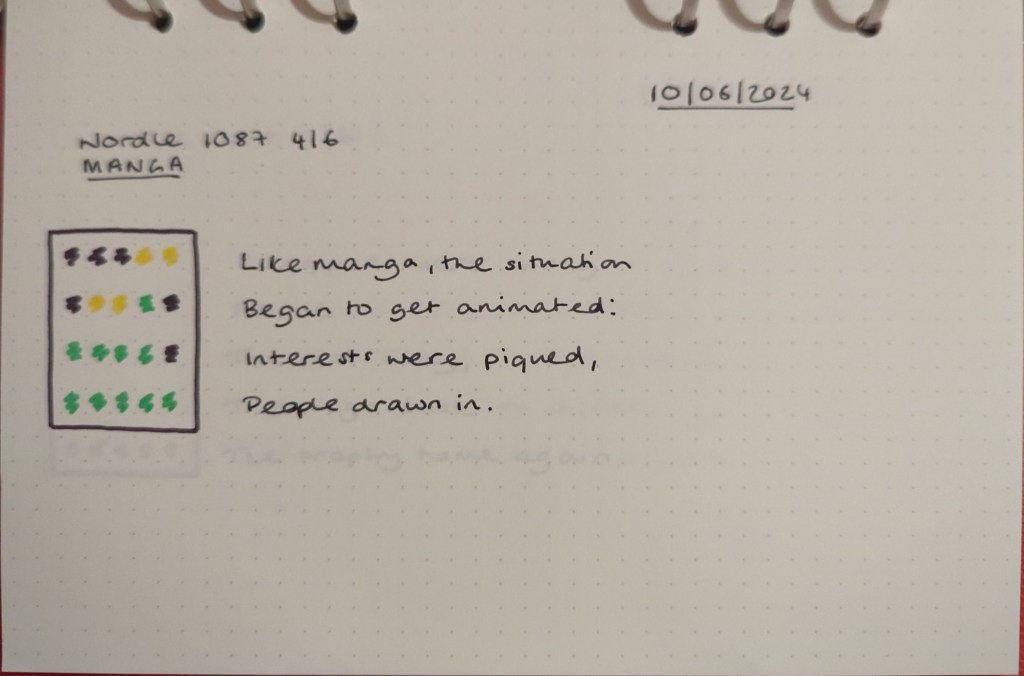 10/06/2024
Wordle 1087 4/6
MANGA
Like manga, the situation
Began to get animated:
Interests were piqued,
People drawn in.